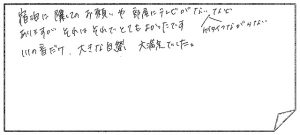 宿泊に際してのお願いや部屋にテレビがないなど
ありますが それはそれで とてもよかったです
ケイタイつながらない
川の音だけ、大きな自然 大満足でした。